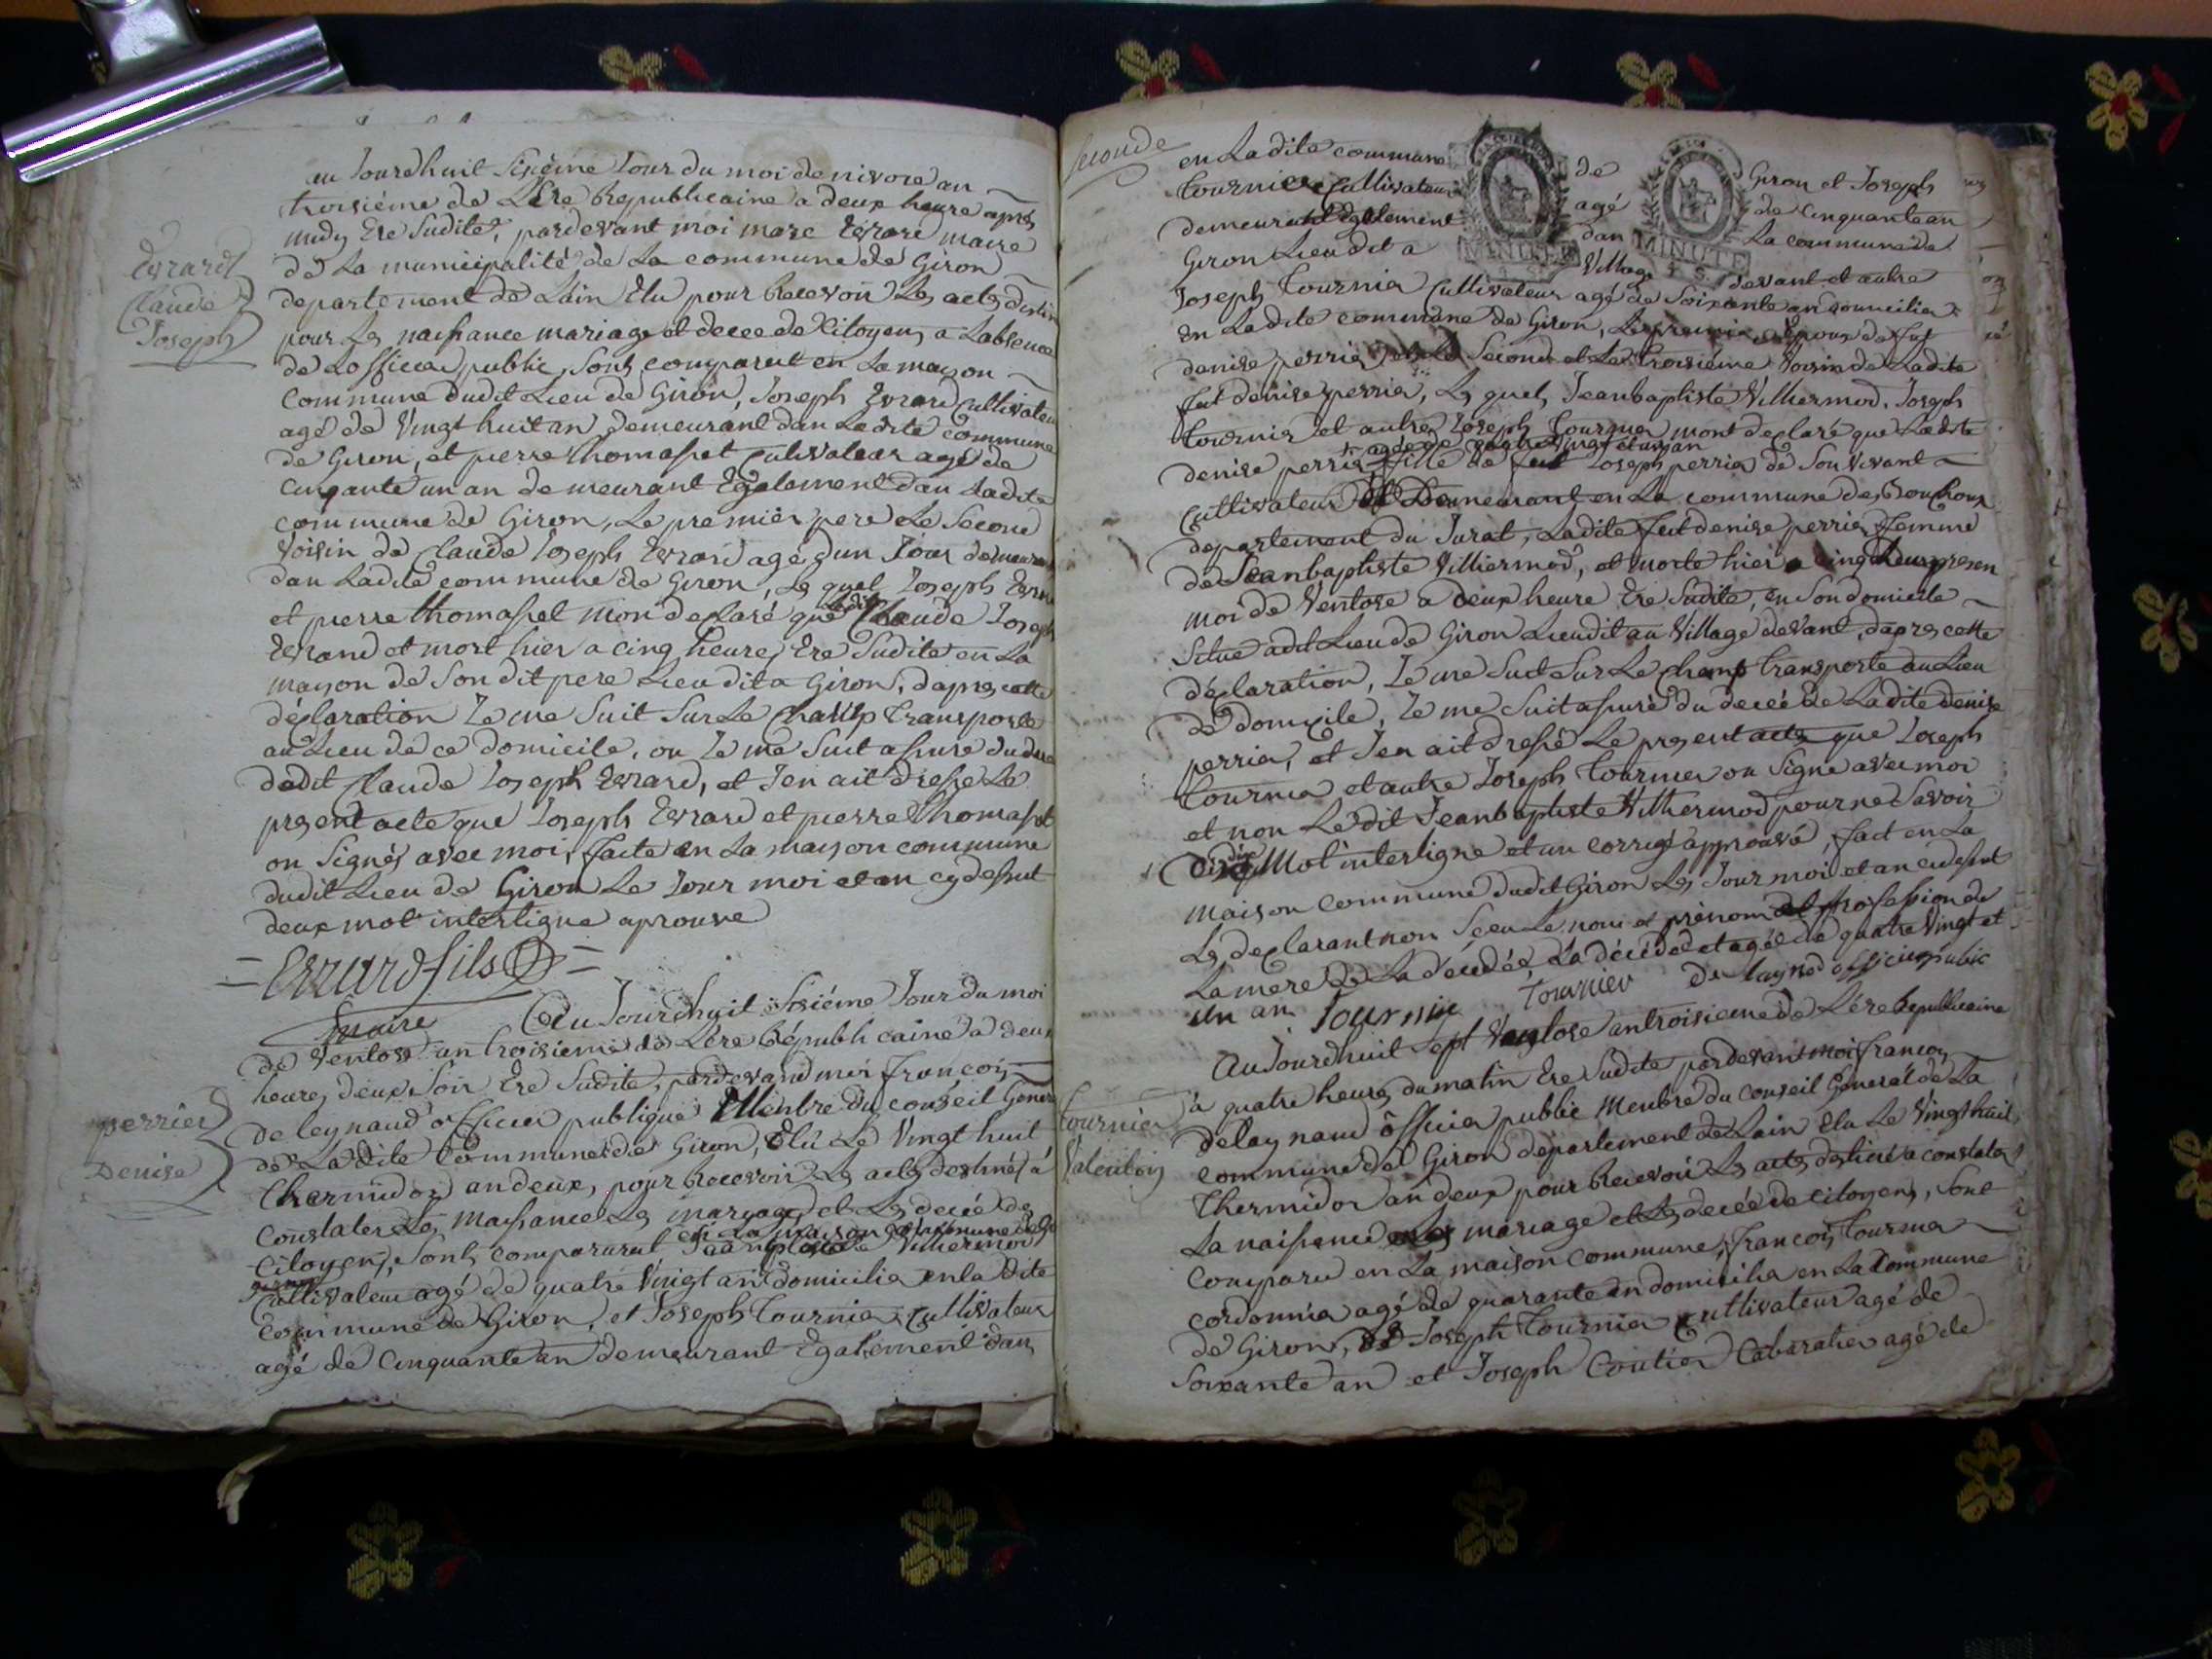 au Jourdhuit Sixième Jour du moi de nivose an
troisième de L'Ere Republicaine a deux heure apres
midy Ere Sudite, pardevant moi marc Evrard maire
de La municipalité de La commune de Giron
departement de Lain Elu pour Recevoir Les actes destin
pour Les naissance mariage et decee de Citoyens a Labsence
de Lofficier public, Sont comparut en La mayson
Commune dudit Lieu de Giron, Joseph Evrard Cultivateur
agé de Vingt huit an demeurant dan Ladite commune
de Giron, et pierre thomasset Cultivateur agé de
Cinqante un an demeurant Egalement dan Ladite
commune de Giron, Le premier pere Le Second
Voisin de Claude Joseph Evrard agé d'un Jour demeurant
dan Ladite commune de Giron, Le quel Joseph Evrard
et pierre thomasset mon declaré que Ledit Claude Joseph
Evrard et mort hier a cinq heure, Ere Sudite en La
mayson de Son dit pere Lieu dit a Giron, dapres cette
déclaration Je me Suit Sur Le Champ transporté
au Lieu de ce domicile, ou Je me Suit assuré du dece
dudit Claude Joseph Evrard, et Jen ait dressé Le
present acte que Joseph Evrard et pierre thomasset
on Signés avec moi, faite en La mayson commune
dudit Lieu de Giron Le Jour moi et an cy dessut
deux mot interligne aprouve
Evrard fils
maire
Evrard
Claude
Joseph
Au Jourdhuit Sixiéme Jour du moi
de Ventose an troisieme de Lére Républicaine a deux
heures deux Soir Ere Sudite, pardevand moi françois
deleynaud officier publique Menbre du conseil Gener
de La dite Commune de Giron, Elú Le Vingt huit
thermidor an deux, pour Recevoir Les actes destinés á
Constater Les Naissance Les maryage et Les decée de
Citoyens, Sont comparurut en La maison commune de Giron Jeanbaptiste Villiermod
Cultivateur agé de quatre Vingt an domicilier en la dite
Commune de Giron, et Joseph Tournier Cultivateur
agé de Cinquante an demeurant Egalement dan
perrier
Denise
Seconde
en La dite commune de Giron et Joseph
Tournier Cultivateur agé de Cinquante an
demeurant Egalement dan La commune de
Giron Lieu dit a Village devant et autre
MINUTE
MINUTE
Joseph Tournier Cultivateur agé de Soixante an domicilier
en Ladite commune de Giron, Le premier Epoux de fut
denise perrier, Le Second et Les troisiéme Voisin de Ladite
fut denise perrier, Les quels Jeanbaptiste Villiermod, Joseph
Tournier et autre Joseph Tournier mont declaré que Ladite
denise perrier agée de quatre Vingt et un an fille de feut Joseph perrier de Son Vivant
Cultivateur Demeurant en La commune des Bouchoux
departement du Jurat, Ladite feut denise perrier femme
de Jeanbaptiste Villiermod, et morte hier a cinq heure presen
moi de Ventose a deux heure Ere Sudite, en Son domicile
Situé audit Lieu de Giron Lieu dit au Village devant, dapres cette
déclaration, Je me Suit Sur Le Champ transporté au Lieu
de domicile, Je me Suit assuré du deceé de Ladite Denise
perrier, et Jen ait dressé Le present acte que Joseph
Tournier et autre Joseph Tournier on Signe avec moi
et non Ledit Jeanbaptiste Villiermod pour ne Savoir
dix Mot interligne et un corrigé approuvé, fait en La
maison Commune dudit Giron Les Jour moi et an ci dessut
Les declarant non Sceu Le nom et prénom et profession de
La mere de La décédée, La décédée et agée de quatre Vingt et
un an. Tournier Tournier De laynod officier public
Tournier
Valentin
Au Jourdhuit Sept Ventose an troisieme de Lére Republicaine
á quatre heures du matin Ere Sudite pardevant moi francoy
delaynaud officier public Menbre du conseil General de La
commune de Giron departement de Lain Elu Le Vingt huit
thermidor an deux pour Recevoir Les actes destiné a constater
La naissance Les mariage et Les decée de citoyens, Sont
Comparu en La maison commune, françois Tournier
cordonnier agé de quarante an domicilier en La Commune
de Giron, et Joseph Tournier Cultivateur agé de
Soixante an et Joseph Coutier Cabaratier agé de